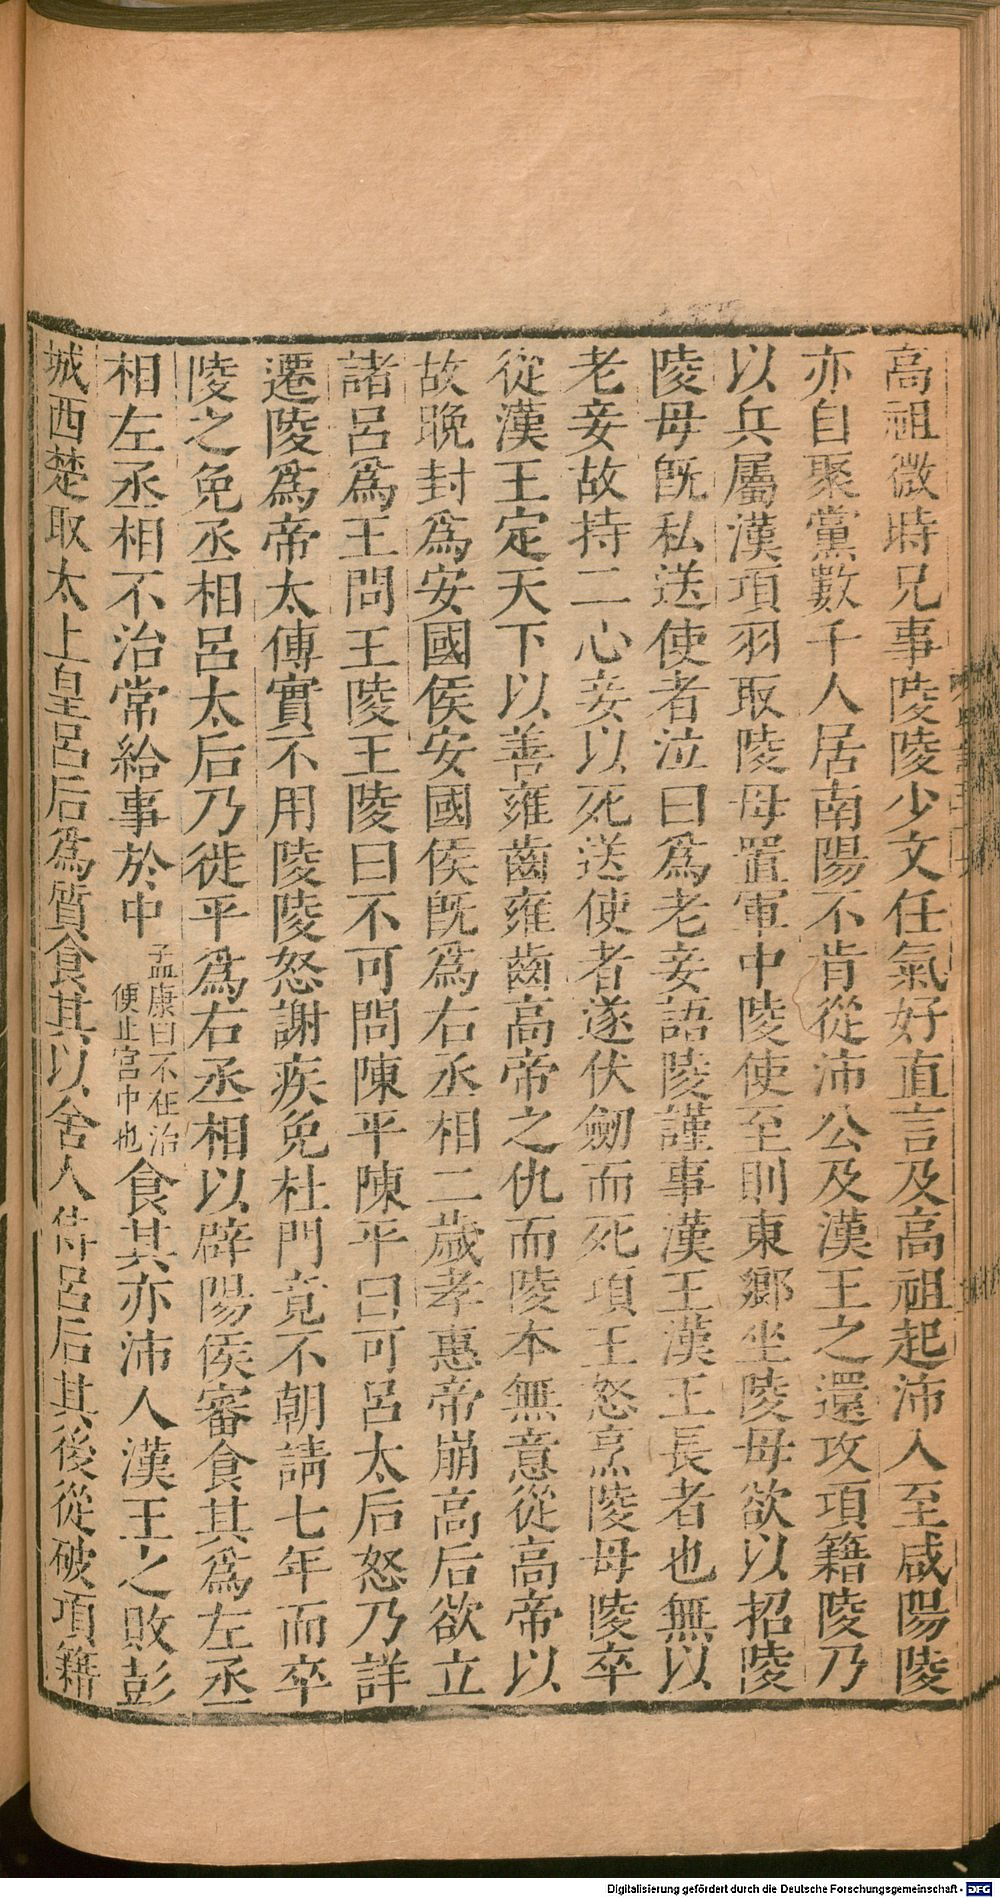 高祖微時兄事陵陵少文任氣好直言及高祖起沛入至咸陽陵
亦自聚黨數千人居南陽不肯從沛公及漢王之還攻項籍陵乃
以兵屬漢項羽取陵母置軍中陵使至則東鄉坐陵母欲以招陵
陵母既私送使者泣曰為老妾語陵謹事漢王漢王長者也無以
老妾故持二心妾以死送使者遂伏劒而死項王怒烹陵母陵卒
從漢王定天下以善雍齒雍齒高帝之仇而陵本無意從高帝以
故晚封為安國侯安國侯既為右丞相二歲孝惠帝崩高后欲立
諸呂為王問王陵王陵曰不可問陳平陳平曰可呂太后怒乃詳
遷陵為帝太傅實不用陵陵怒謝疾免杜門竟不朝請七年而卒
陵之免丞相呂太后乃徙平為右丞相以辟陽侯審食其為左丞
相左丞相不治常給事於中
孟康曰不在治
便止宮中也
食其亦沛人漢王之敗彭
城西楚取太上皇呂后為質食其以舍人侍呂后其後從破項籍
Digitalisierung gefördert durch die Deutsche Forschungsgemeinschaft - DFG